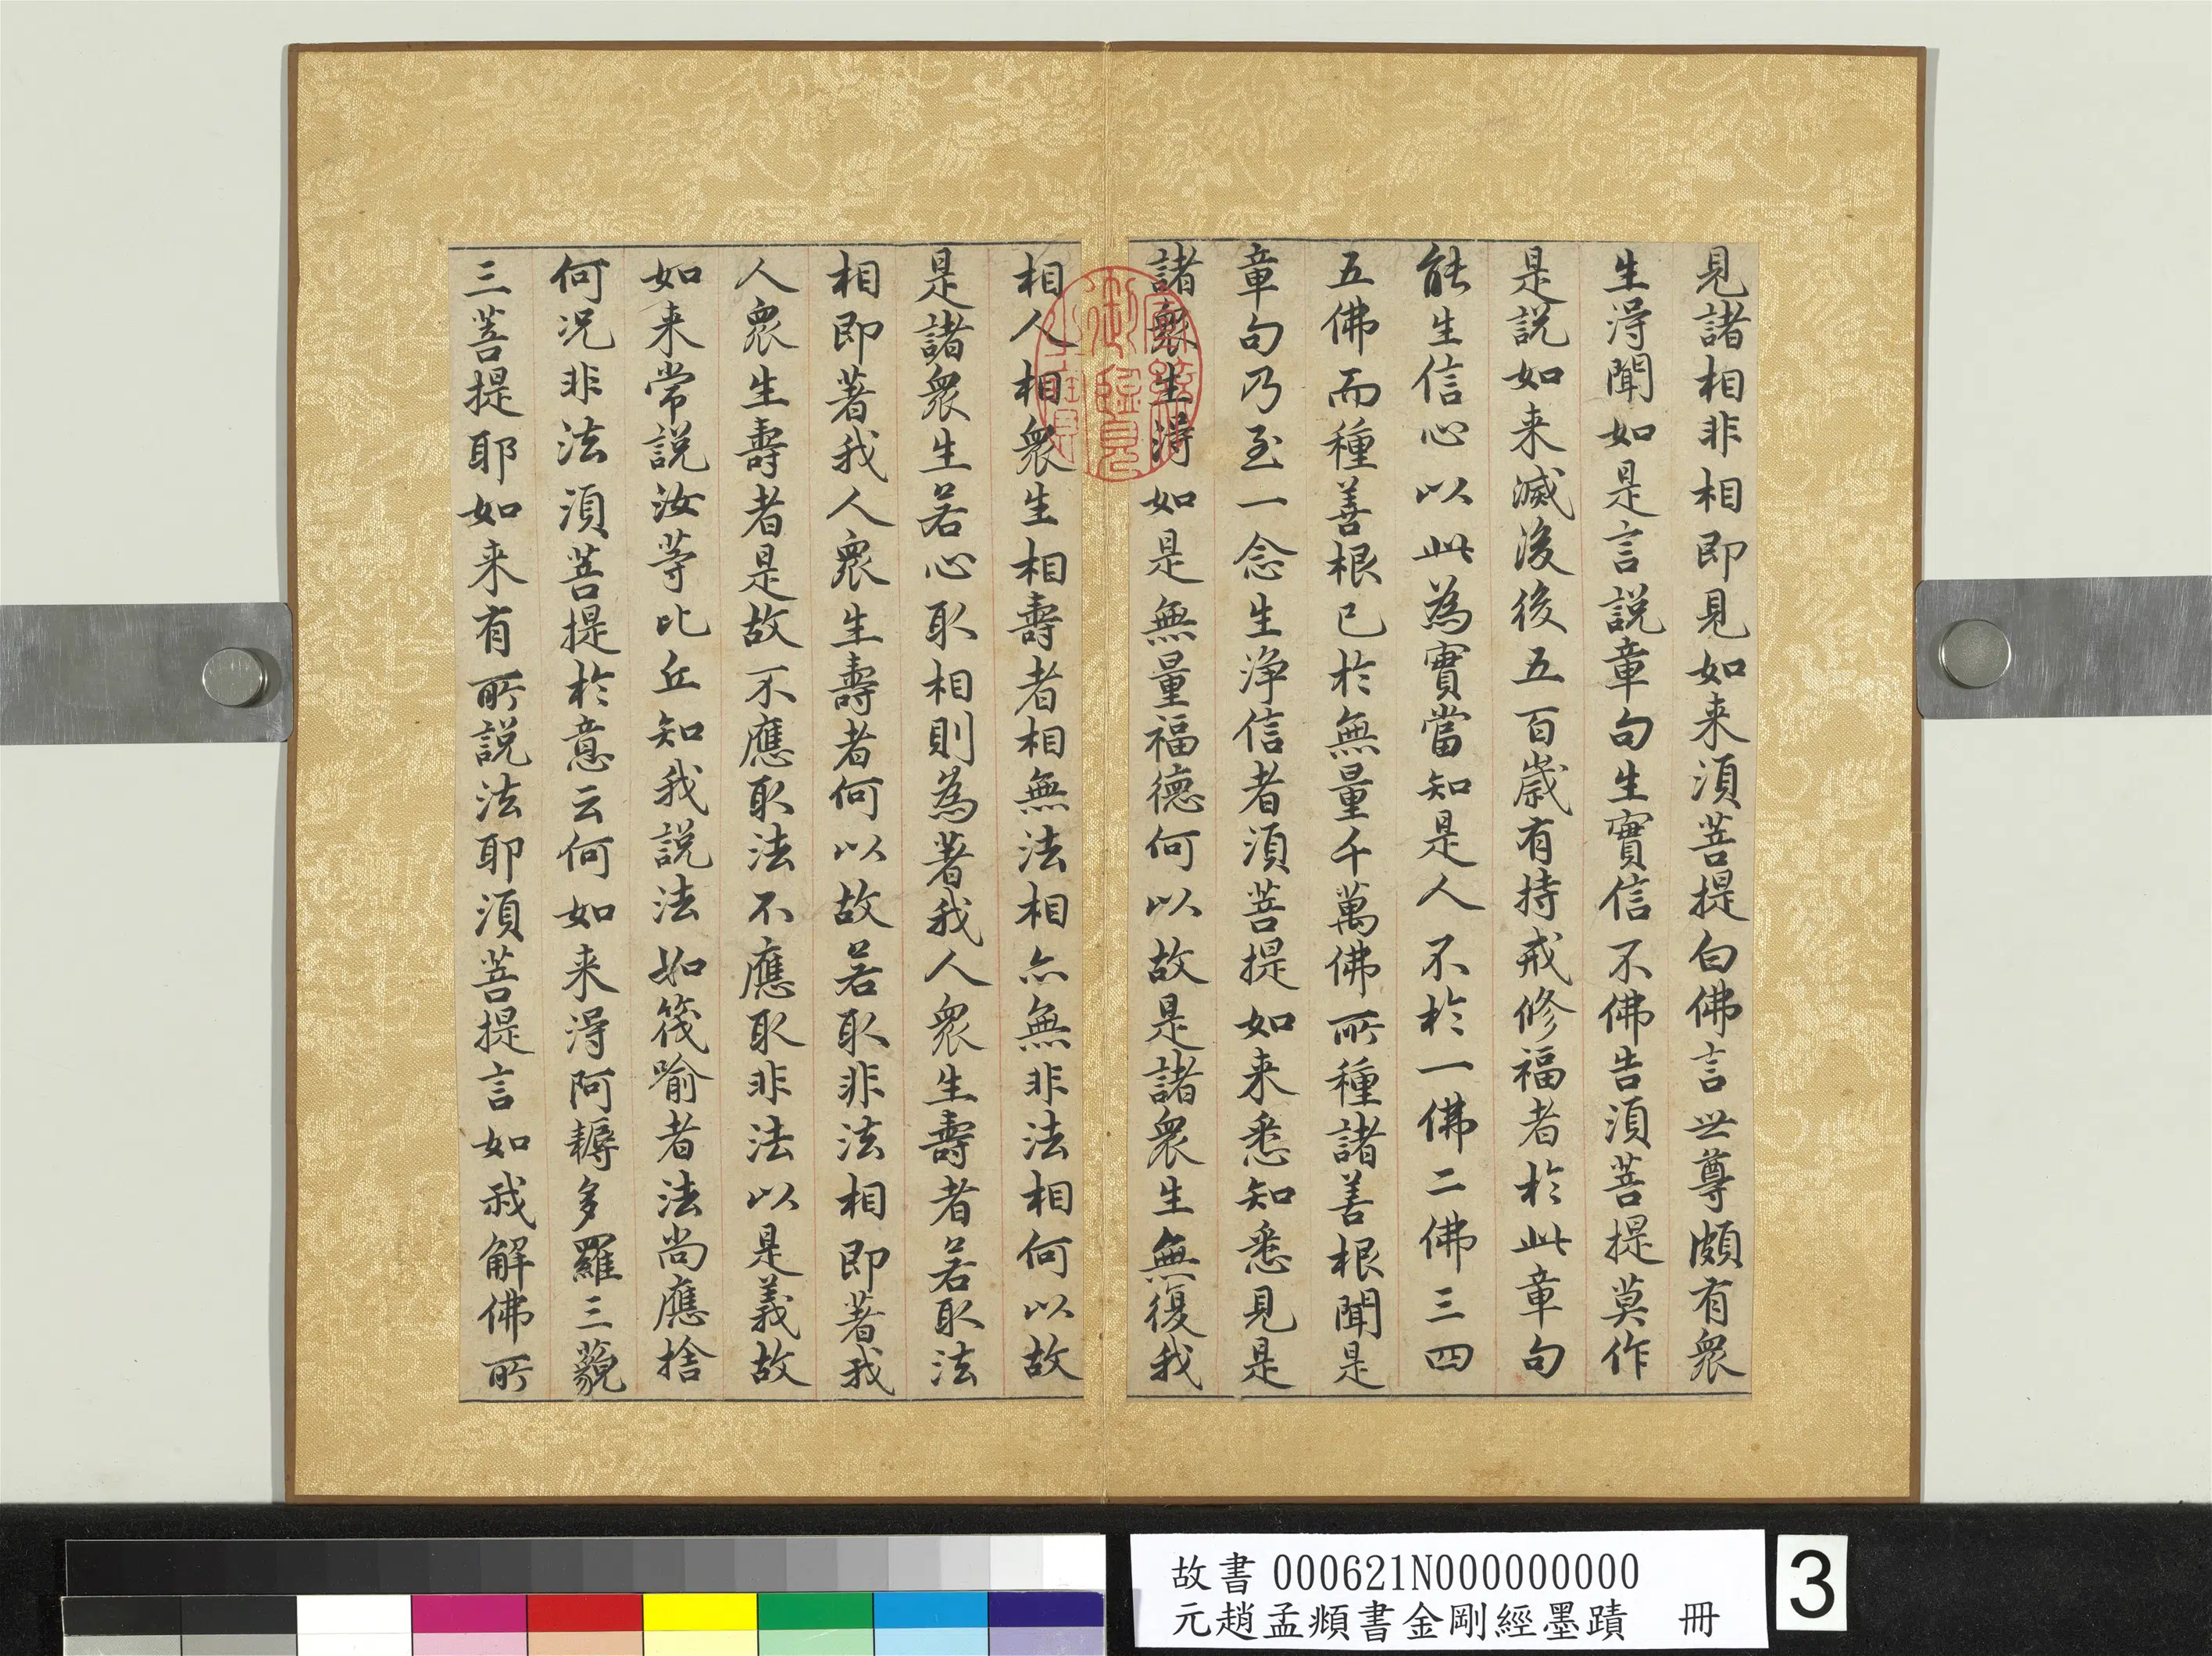 見諸相非相即見如来湏菩提白佛言世尊頗有衆
生淂聞如是言說章句生實信不佛告湏菩提莫作
是說如来滅後後五百歲有持戒修福者於此章句
能生信心以此為實當知是人不於一佛二佛三四
五佛而種善根已於無量千萬佛所種諸善根聞是
章句乃至一念生淨信者湏菩提如来悉知悉見是
諸衆生淂如是無量福德何以故是諸衆生無復我
相人相衆生相壽者相無法相亦無非法相何以故
是諸衆生若心取相則為著我人衆生壽者若取法
相即著我人衆生壽者何以故若取非法相即著我
人衆生壽者是故不應取法不應取非法以是義故
如来常說汝等比丘知我說法如筏喻者法尚應捨
何況非法湏菩提於意云何如来淂阿耨多羅三藐
三菩提耶如来有所說法耶湏菩提言如我解佛所
御臨
故書 000621N000000000
元趙孟頫書金剛經墨蹟 冊
3